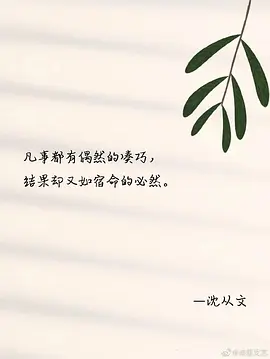 凡事都有偶然的凑巧，
结果却又如宿命的必然。
—沈从文